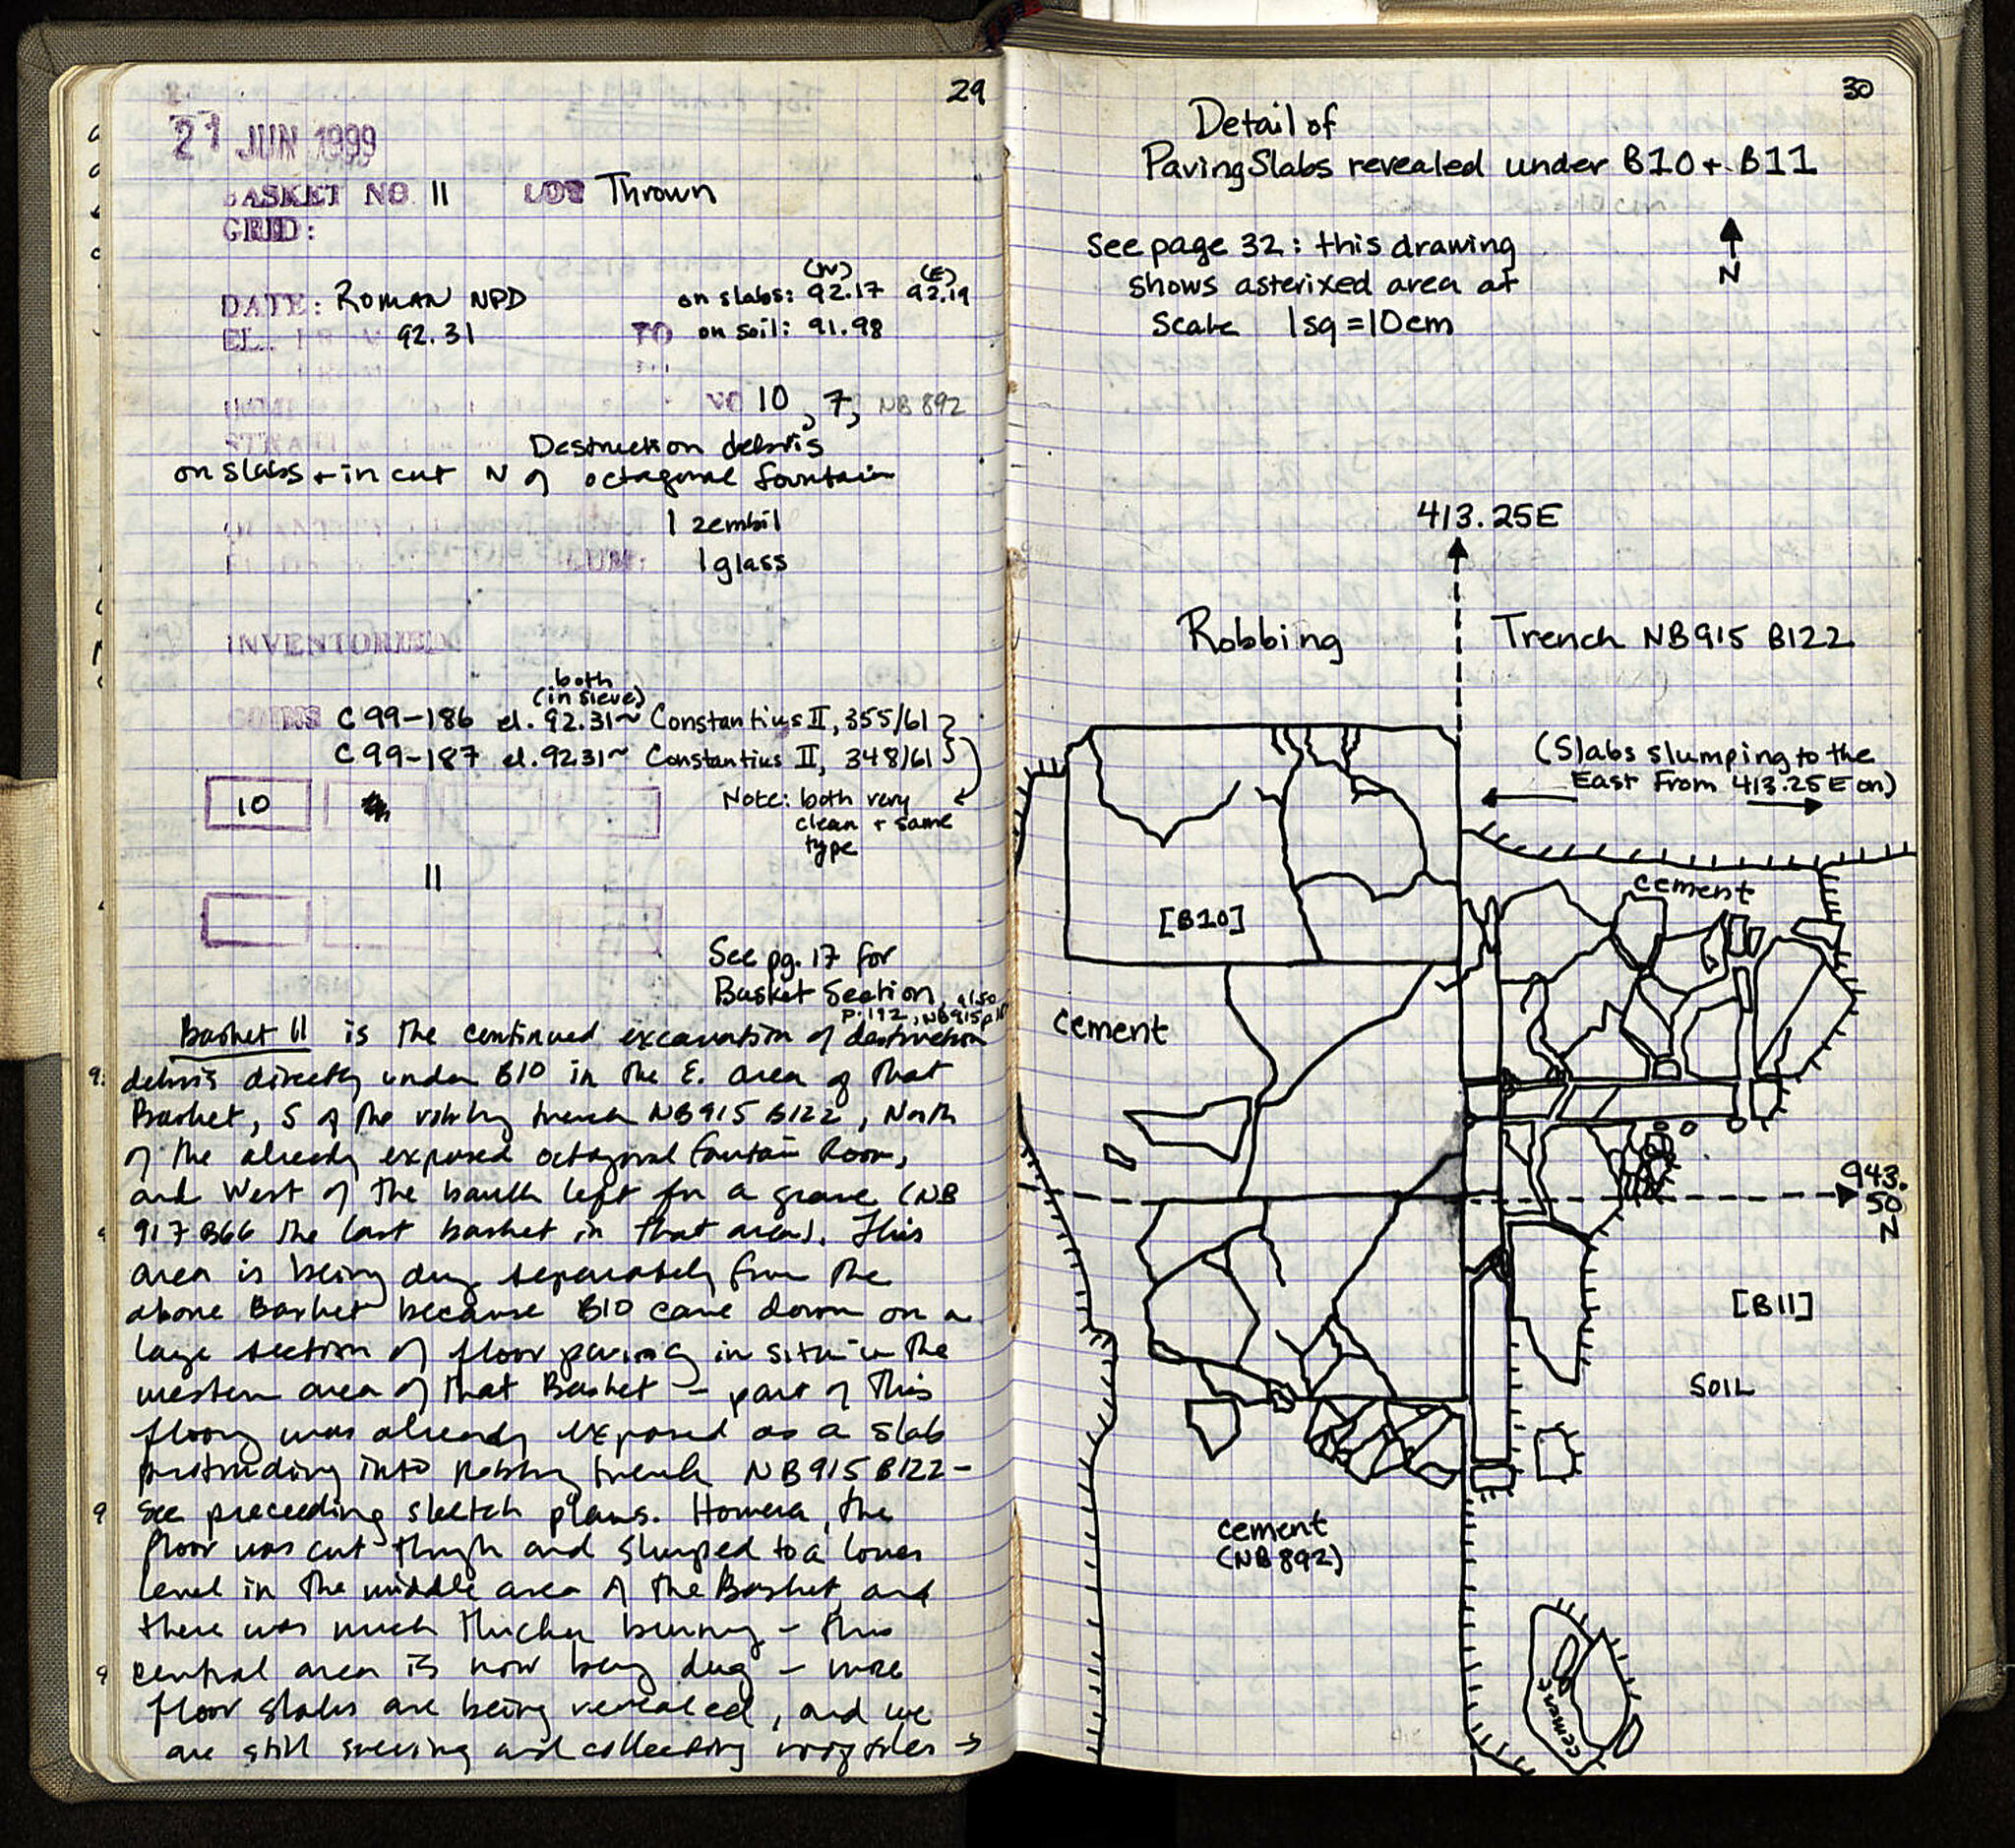 29
21 JUN 1999
BASKET NO 11 LOT Thrown
GRID:
(W) (E)
DATE: ROMAN NPD on slabs: 92.17 92.19
EL. 92.31 TO on soil: 91.98
10, 7, NB 892
Destruction debris
on slabs + in cut N of octagonal fountain
1 zembil
1 glass
INVENTORIED
both
(in sieve)
COINS C 99-186 el. 92.31~ Constantius II, 355/61
C 99-187 el. 92.31~ Constantius II, 348/61
10
Note: both very
clean + same
type
11
See pg. 17 for
Basket Section, also
p. 192, NB915
Basket 11 is the continued excavation of destruction
debris directly under B10 in the E. area of that
Basket, S of the robbing trench NB915 B122, North
of the already exposed octagonal fountain Room,
and West of the baulk left for a grave (NB
917 B66 the last basket in that area). This
area is being dug separately from the
above Basket because B10 came down on a
large section of floor paving in situ in the
western area of that Basket - part of this
floor was already exposed as a slab
protruding into Robbing trench NB915 B122-
see preceeding sketch plans. However, the
floor was cut through and slumped to a lower
level in the middle area of the Basket, and
there was much thicker burning - this
central area is now being dug - more
floor slabs are being revealed, and we
are still sieving and collecting rooftiles →
30
Detail of
Paving Slabs revealed under B10 + B11
See page 32: this drawing
shows asterixed area at
Scale 1sq = 10cm
N
413.25E
Robbing Trench NB915 B122
(Slabs slumping to the
East From 413.25E on)
cement
[B10]
cement
943.
50
N
[B11]
SOIL
cement
(NB 892)
cement